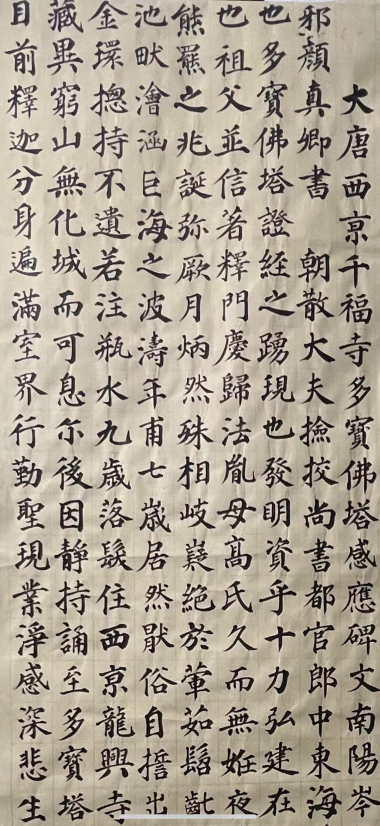 大唐西京千福寺多寶佛塔感應碑文南陽岑
邪顏真卿書 朝散大夫撿挍尚書都官郎中東海
也多寶佛塔證經之踴現也發明資乎十力弘建在
也祖父並信著釋門慶歸法胤母高氏久而無姙夜
熊羆之兆誕弥厥月炳然殊相岐嶷絕於葷茹髫齓
池畎澮涵巨海之波濤年甫七歲居然猒俗自誓出
金環揔持不遺若注瓶水九歲落髮住西京龍興寺
藏異窮山無化城而可息尒後因靜持誦至多寶塔
目前釋迦分身遍滿空界行勤聖現業淨感深悲生